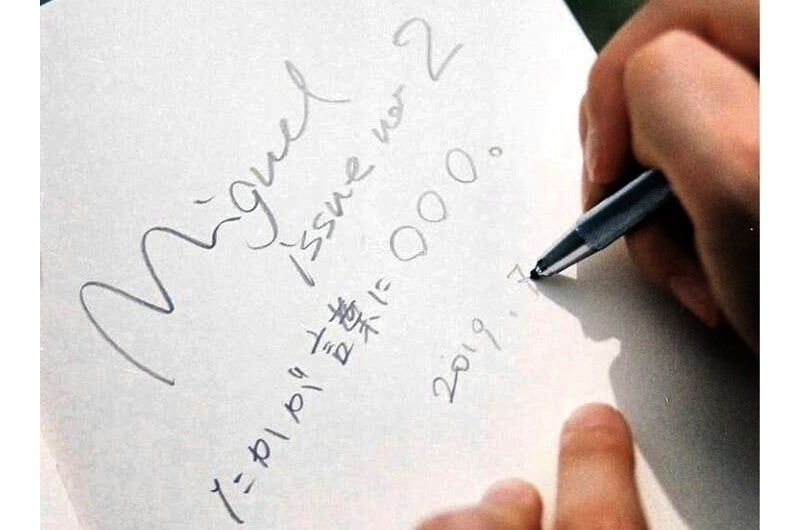 Miguel
issue no. 2
たかが言葉に〇〇〇。
2019.7